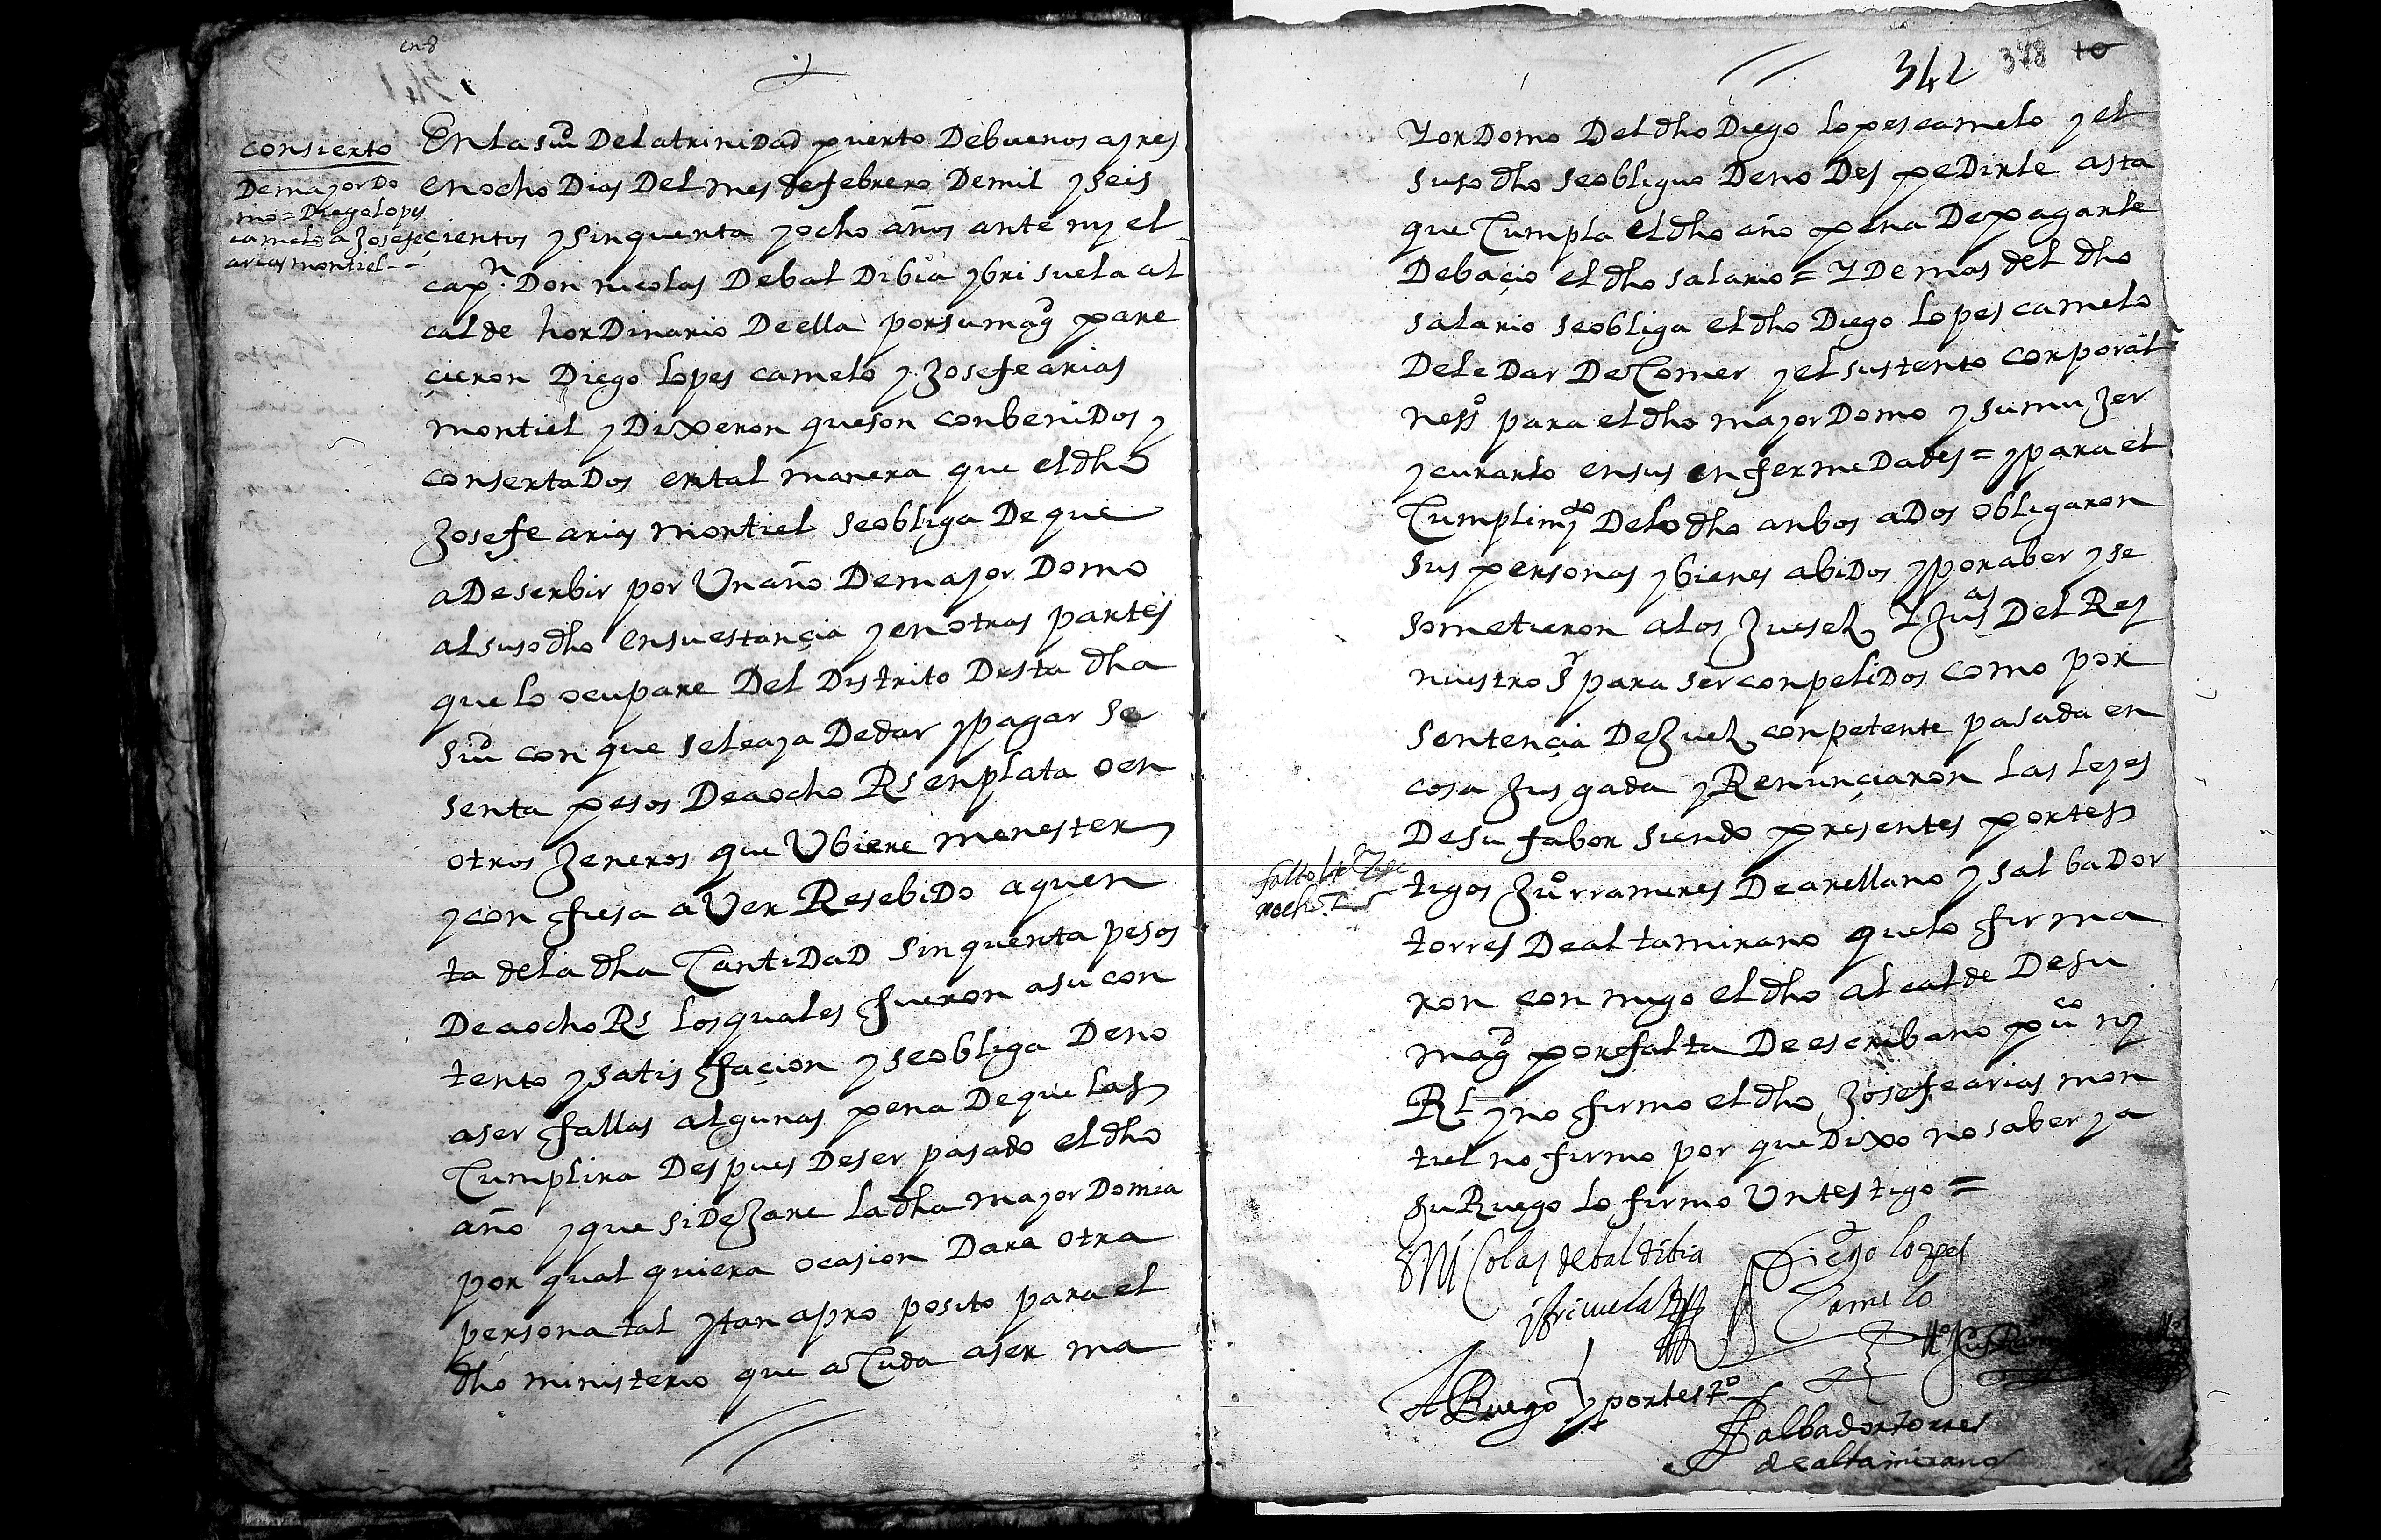 en 8
consierto
De mayor Do
mo = Diego lopes
camelo a Josefe
arias montiel - -
En la siud De la trinidad puerto De buenos ayres
en ocho Dias Del mes de febrero De mil y seis
cientos y sinquenta y ocho años ante my el
capn. Don nicolas De bal Dibia y bri suela al
calde hor Dinario De ella por su magd pare
çieron Diego lopes camelo y Josefe arias
montiel y Dixeron que son conbeniDos y
consertaDos en tal manera que el dho
Josefe arias montiel se obliga De que
a De serbir por Un año De mayor Domo
al suso dho en su estançia y en otras partes
que lo ocupare Del Distrito Desta dha
siud con que se le aya De dar y pagar se
senta pesos De a ocho Rs en plata o en
otros Jeneros que Ubiere menester
y con fiesa a Ver ResebiDo a quen
ta de la dha CantiDaD sinquenta pesos
De a ocho Rs los quales fueron a su con
tento y satis façion y se obliga De no
aser fallas algunas pena De que las
Cumplira Des pues De ser pasado el dho
año y que si DeJare la dha mayor Domia
por qual quiera ocasion Dara otra
persona tal y tan apro posito para el
dho ministerio que a Cuda a ser ma
342 378 10
yor Domo Del dho Diego lopes camelo y el
suso dho se obliguo De no Des peDirle asta
que Cumpla el dho año pena De pagarle
De baçio el dho salario = Y De mas del dho
salario se obliga el dho Diego lopes camelo
De le Dar De Comer y el sustento corporal
nesso para el dho mayor Domo y su muJer
y curarlo en sus enfermeDades = y para el
Cumplimydo De lo dho anbos a Dos obligaron
sus personas y bienes abiDos y por aber y se
sometieron a los Jueses Y Jusas Del Rey
nuestro Sr para ser conpeliDos como por
sentençia De Juez conpetente pasada en
cosa Jus gada y Renunçiaron las leyes
De su fabor siendo presentes por tes
tigos Juo rramires De arellano y sal baDor
torres De al tamirano que lo firma
ron con migo el dho alcalde De su
magd por falta De escribano puco ny
Rl y no firmo el dho Josefe arias mon
tiel no firmo por que Dixo no saber y a
su Ruego lo firmo Un testigo =
Dn Ni Colas de baldibia
y briçuela
Diego lopes
Camelo
A Ruego y por testo
Salbador torres
de altamirano